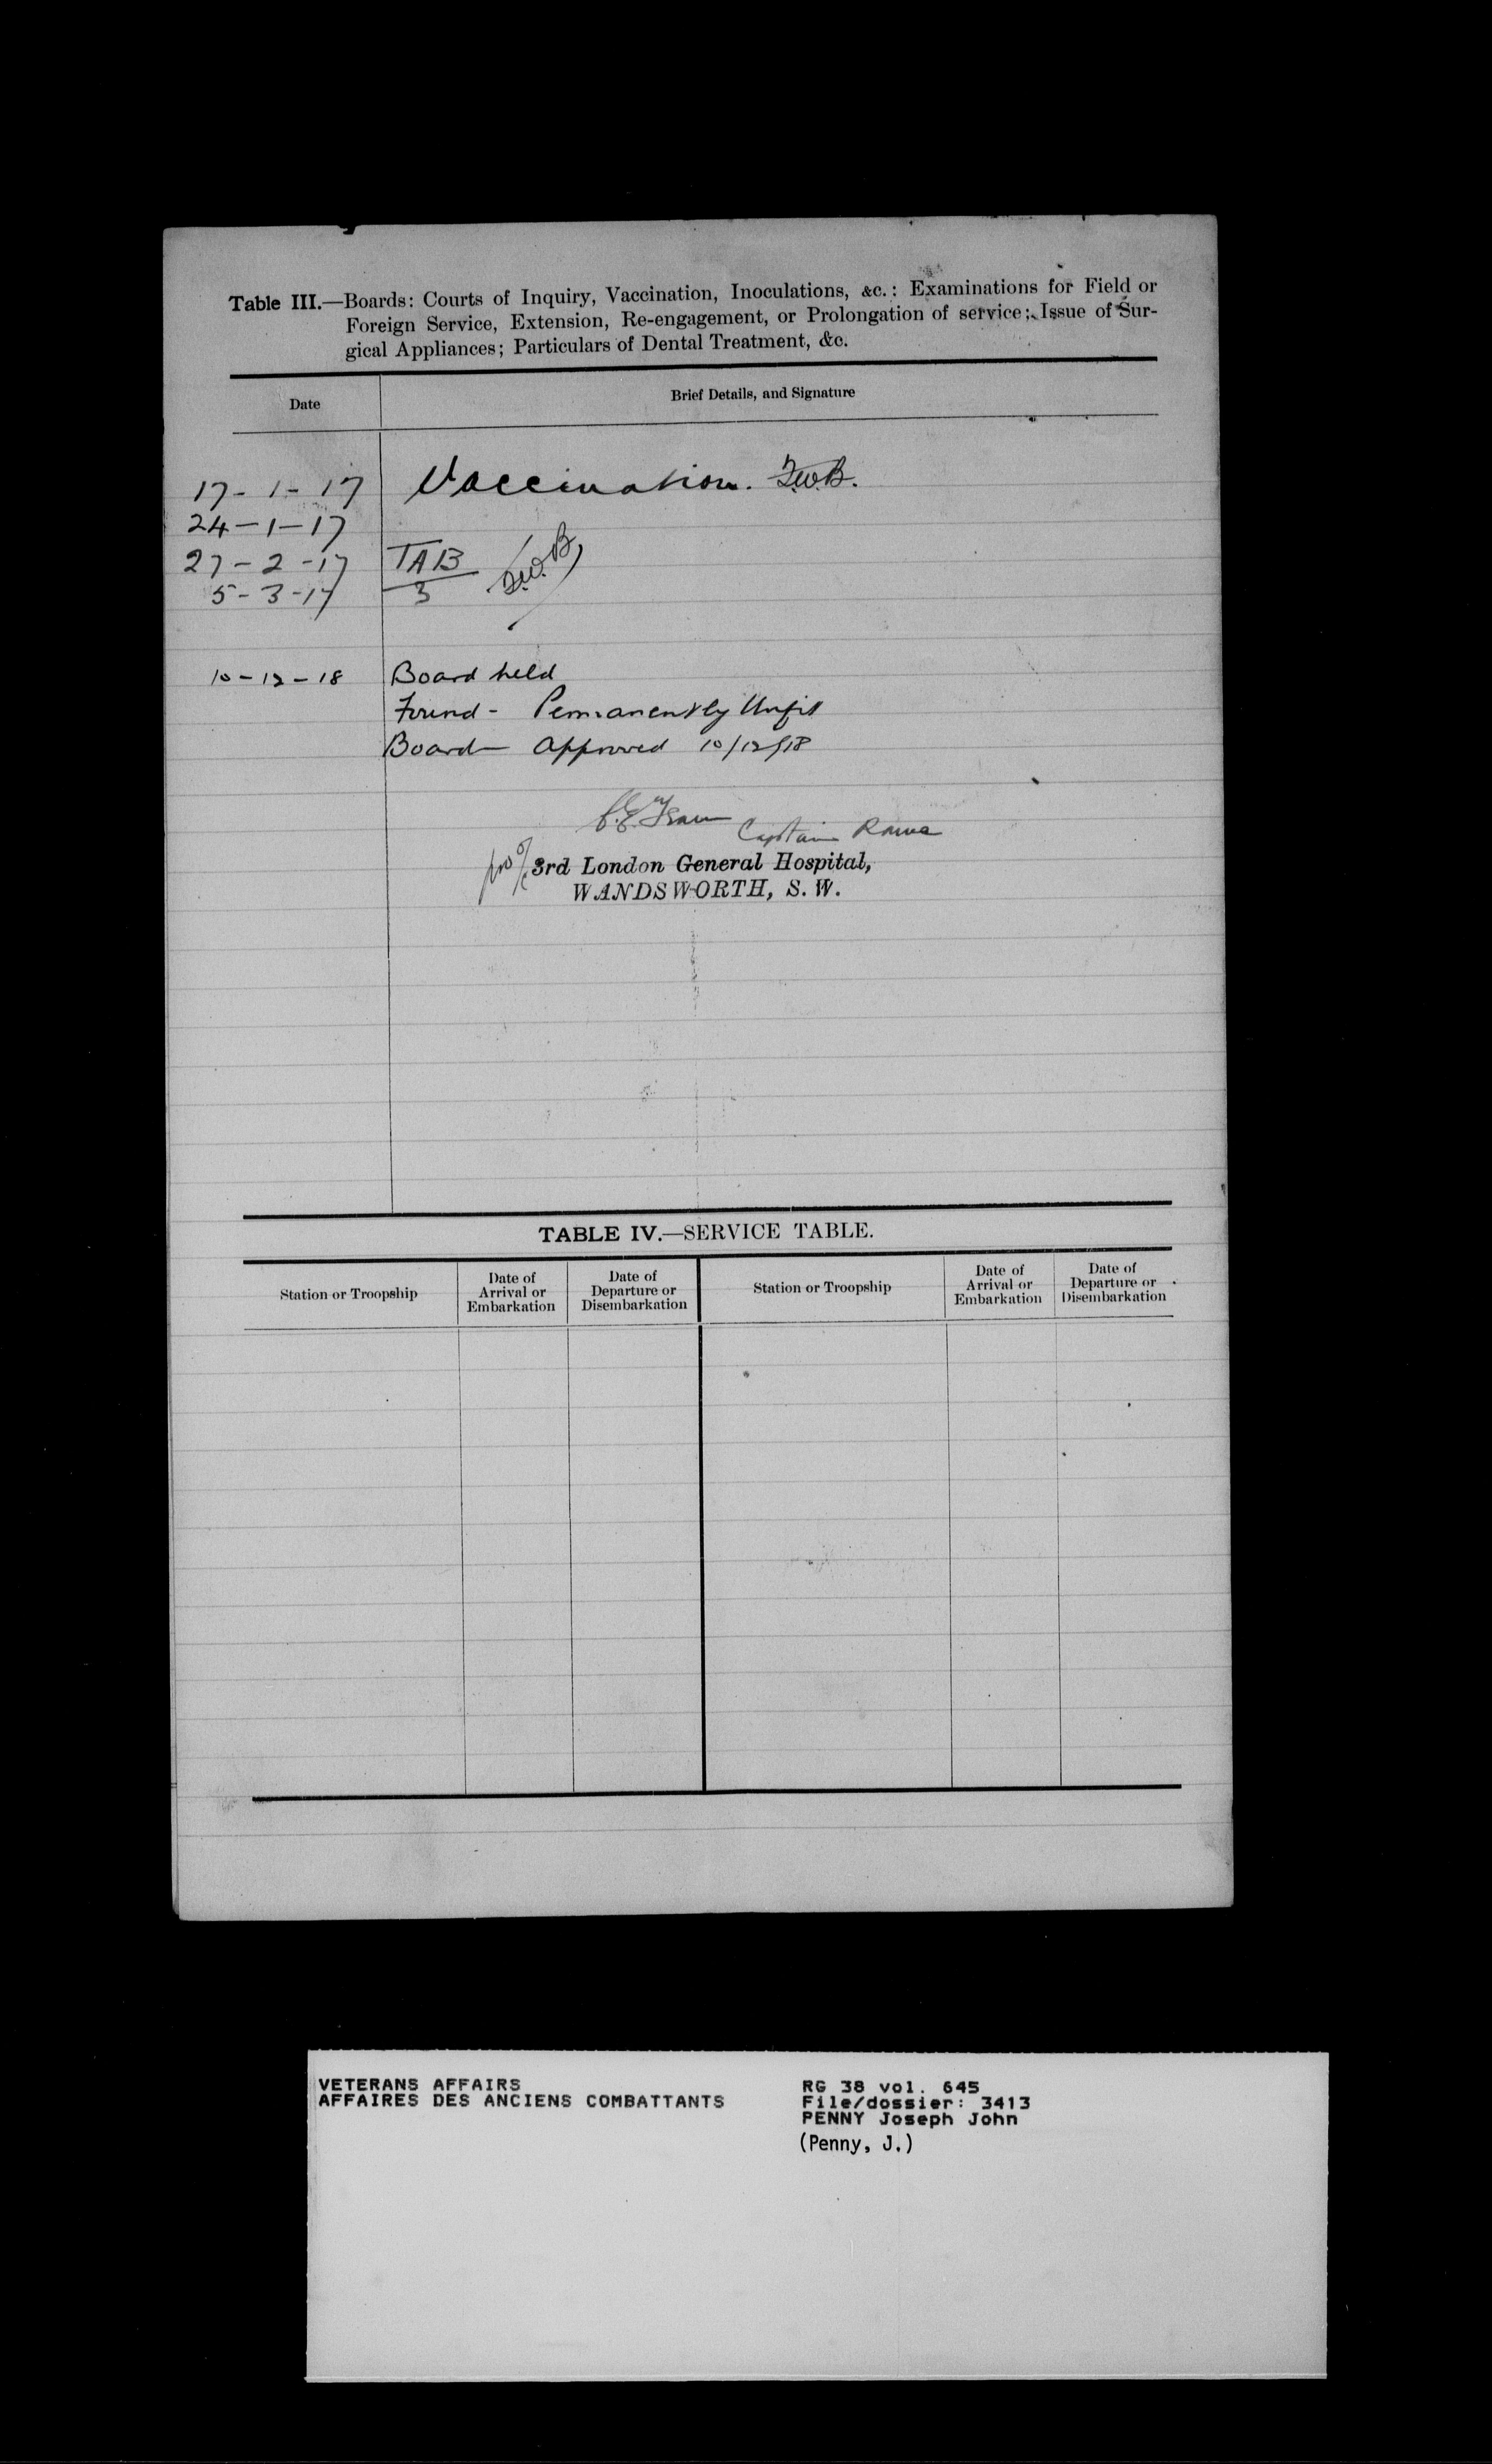 Table III.—Boards: Courts of Inquiry, Vaccination, Inoculations, &c.: Examinations for Field or
Foreign Service, Extension, Re-engagement, or Prolongation of service; Issue of Sur-
gical Appliances; Particulars of Dental Treatment, &c.
Date
Brief Details, and Signature
17-1-17 Vaccination.
24-1-17
27-2-17 TAB
5-3-17 3
10-12-18 Board held
Found - Permanently Unfit
Board Approved 10/12/18
Captain
3rd London General Hospital,
WANDSWORTH, S. W.
TABLE IV.—SERVICE TABLE.
Station or Troopship
Date of
Arrival or
Embarkation
Date of
Departure or
Disembarkation
Station or Troopship
Date of
Arrival or
Embarkation
Date of
Departure or
Disembarkation
VETERANS AFFAIRS
AFFAIRES DES ANCIENS COMBATTANTS
RG 38 vol. 645
File/dossier: 3413
PENNY Joseph John
(Penny, J.)